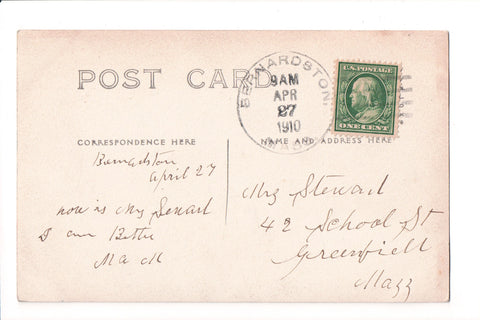 POST CARD
BERNARDSTON,
MASS.
9AM
APR
27
1910
U.S. POSTAGE
ONE CENT
CORRESPONDENCE HERE
NAME AND ADDRESS HERE
Bernardston
april 27
now is Mrs Senart
I am Better
Ma M
Mrs Steward
42 School St
Greenfield
Mazz